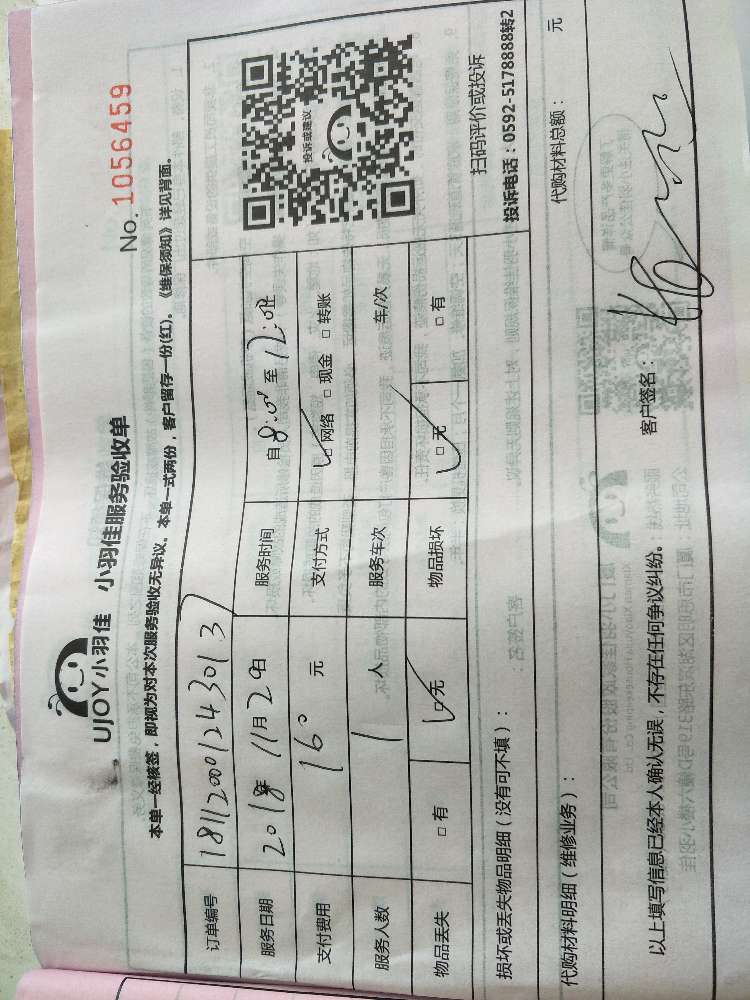 No. 1056459
UJOY小羽佳 小羽佳服务验收单
本单一经核签，即视为对本次服务验收无异议。本单一式两份，客户留存一份(红)。《维保须知》详见背面。
订单编号 18112001243013
服务日期 2018年 11月29日 服务时间 自 8:00 至 12:00
支付费用 160 元 支付方式 □ 网络 □ 现金 □ 转账
服务人数 1 人 服务车次 车/次
物品丢失 □ 有 □ 无 物品损坏 □ 无 □ 有
投诉或建议
扫码评价或投诉
投诉电话：0592-5178888转2
损坏或丢失物品明细（没有可不填）：
代购材料明细（维修业务）： 代购材料总额： 元
以上填写信息已经本人确认无误，不存在任何争议纠纷。 客户签名：